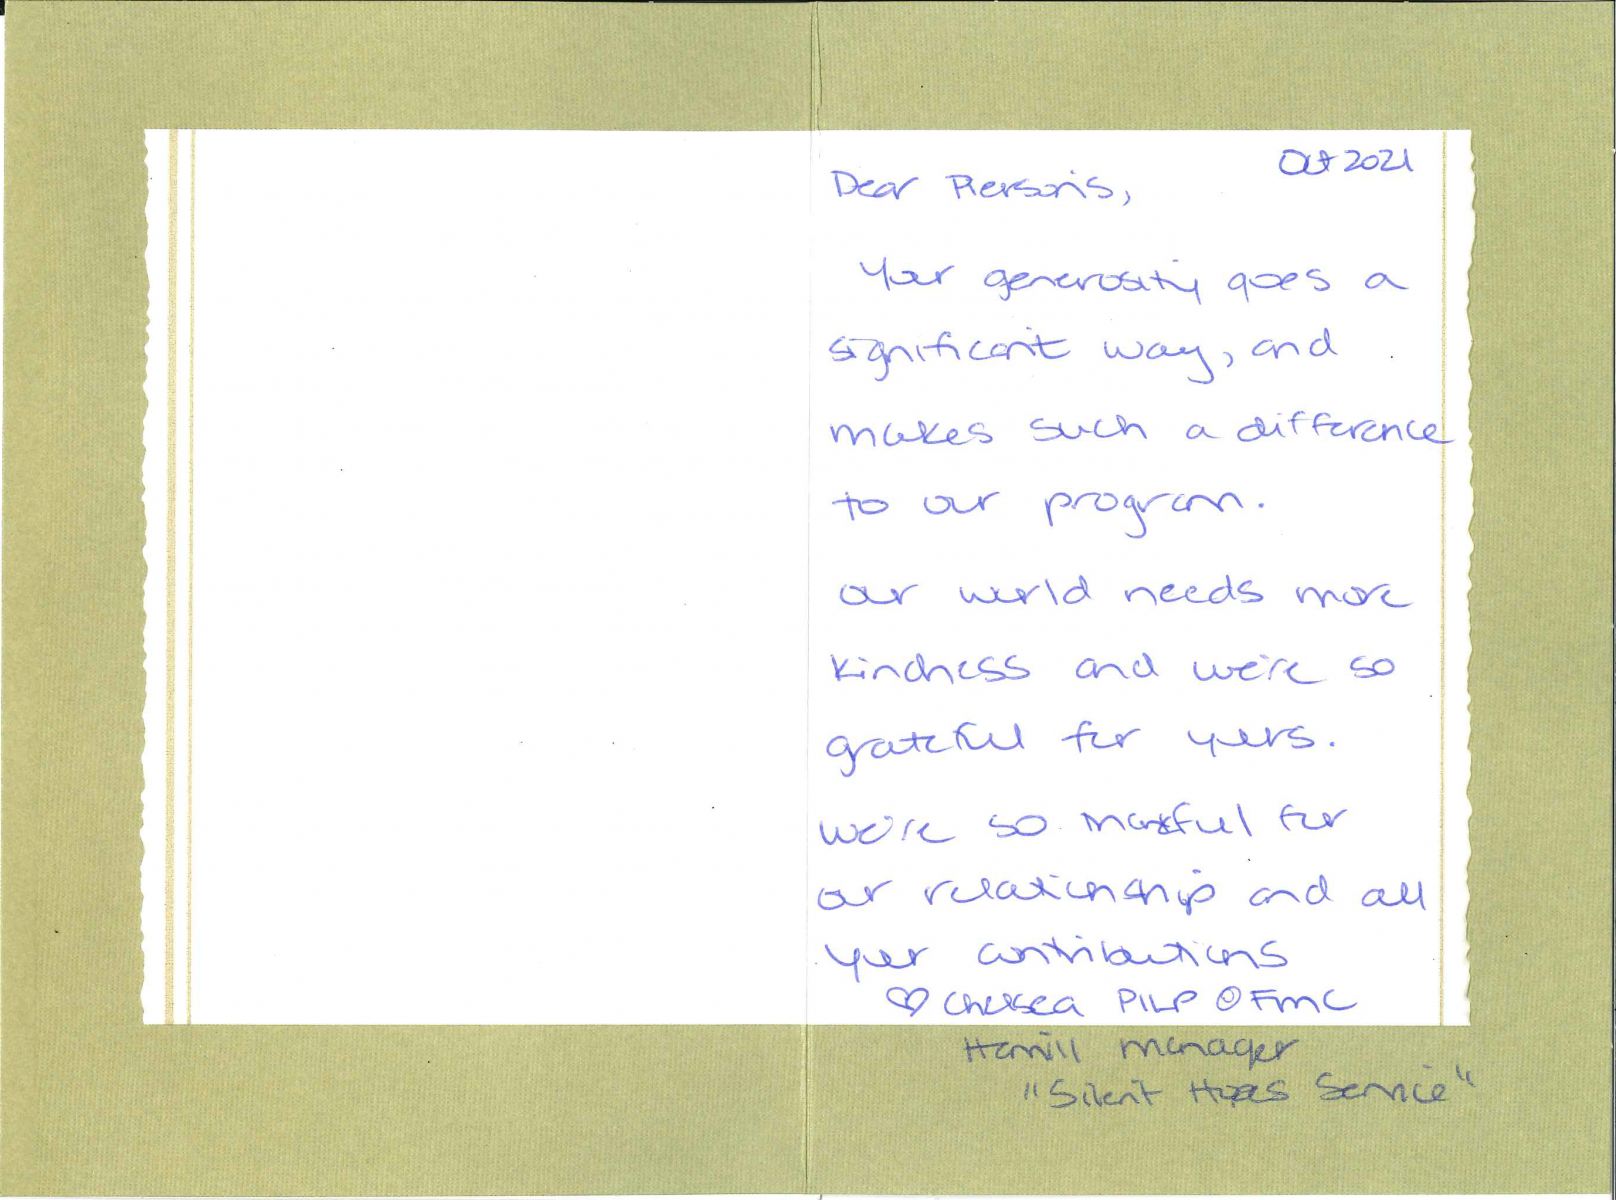 Oct 2021
Dear Pierson's,
Your generosity goes a
significant way, and
makes such a difference
to our program.
our world needs more
kindness and we're so
grateful for yours.
we're so thankful for
our relationship and all
your contributions
♡ Chelsea PILP @ FMC
Hamill manager
"Silent Hooves Service"